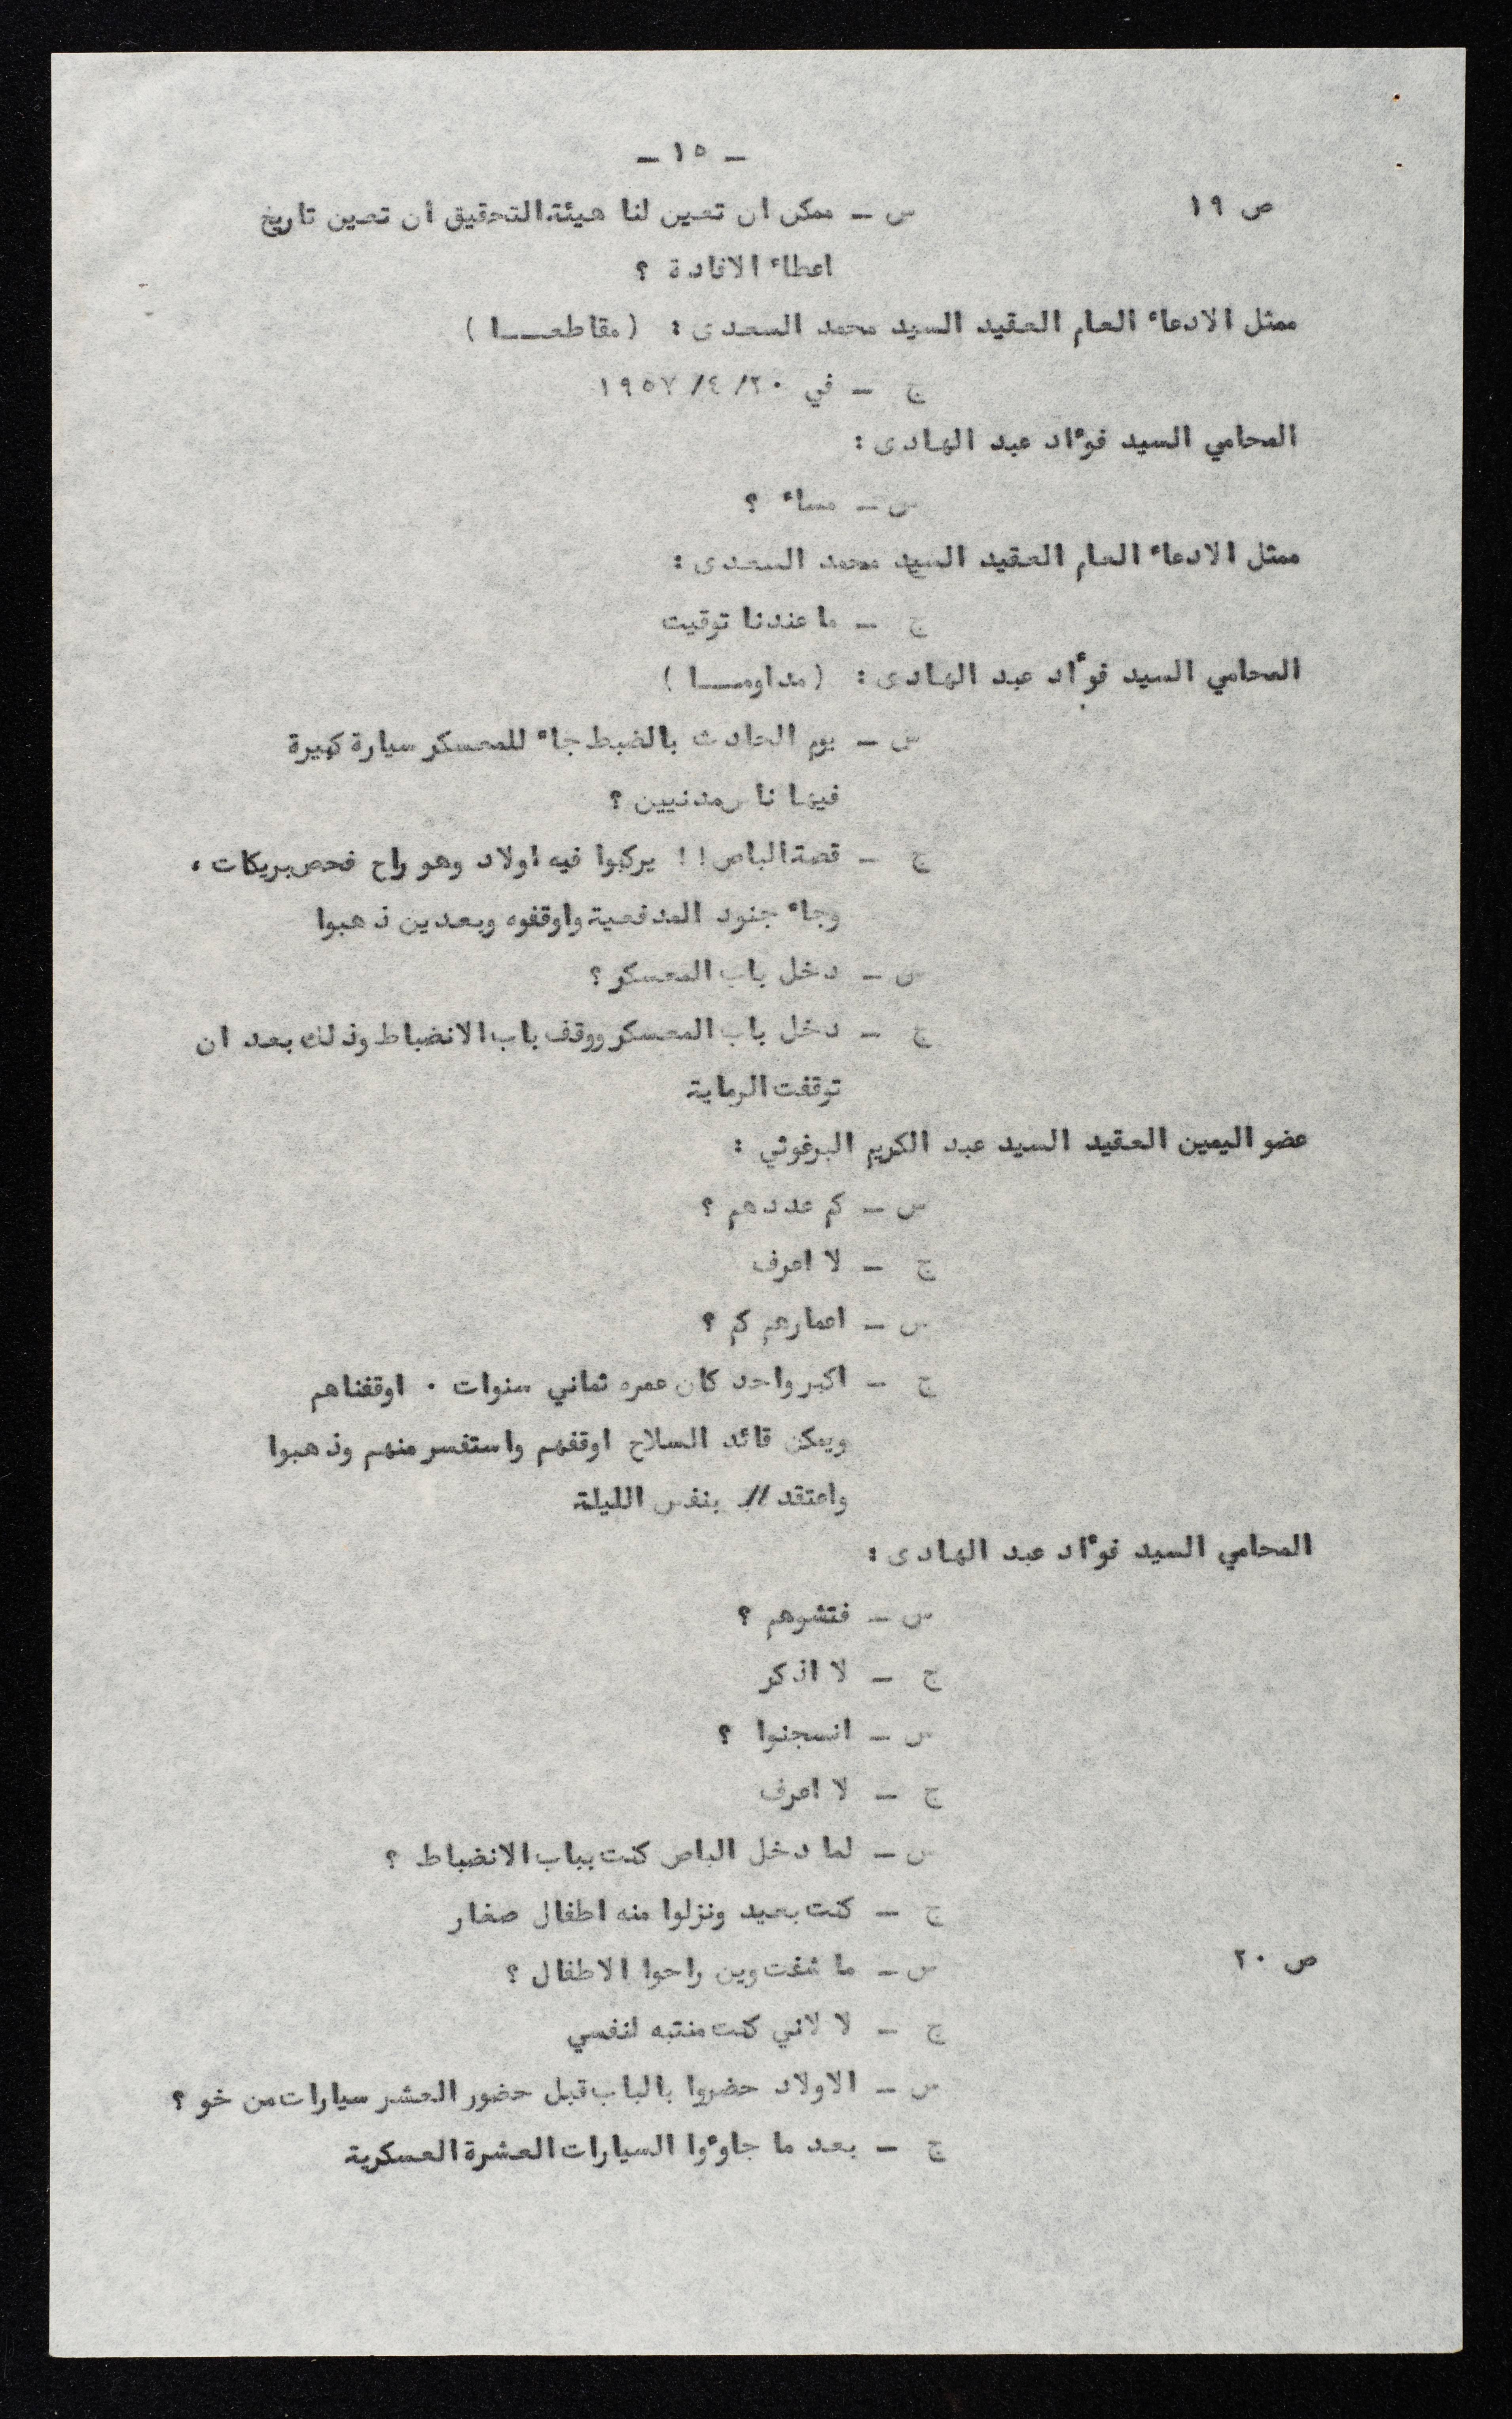 ـ ١٥ ـ
ص ١٩ س ـ ممكن ان تعين لنا هيئة التحقيق ان تعين تاريخ
اعطاء الافادة ؟
ممثل الادعاء العام العقيد السيد محمد السعدى : ( مقاطعـــا )
ج ـ في ٢٠/ ٤/ ١٩٥٧
المحامي السيد فوءاد عبد الهادى :
س ـ مساء ؟
ممثل الادعاء العام العقيد السيد محمد السعدى :
ج ـ ما عندنا توقيت
المحامي السيد فوءاد عبد الهادى : ( مداومـــا )
س ـ يوم الحادث بالضبط جاء للمعسكر سيارة كبيرة
فيها ناس مدنيين ؟
ج ـ قصة الباص ! ! يركبوا فيه اولاد وهو راح فحص بريكات ،
وجاء جنود المدفعية واوقفوه وبعدين ذهبوا
س ـ دخل باب المعسكر ؟
ج ـ دخل باب المعسكر ووقف باب الانضباط وذلك بعد ان
توقفت الرماية
عضو اليمين العقيد السيد عبد الكريم البرغوثي :
س ـ كم عددهم ؟
ج ـ لا اعرف
س ـ اعمارهم كم ؟
ج ـ اكبر واحد كان عمره ثماني سنوات ٠ اوقفناهم
ويمكن قائد السلاح اوقفهم واستفسر منهم وذهبوا
واعتقد // بنفس الليلة
المحامي السيد فوءاد عبد الهادى :
س ـ فتشوهم ؟
ج ـ لا اذكر
س ـ انسجنوا ؟
ج ـ لا اعرف
س ـ لما دخل الباص كنت بباب الانضباط ؟
ج ـ كنت بعيد ونزلوا منه اطفال صغار
ص ٢٠ س ـ ما شفت وين راحوا الاطفال ؟
ج ـ لا لاني كنت منتبه لنفسي
س ـ الاولاد حضروا بالباب قبل حضور العشر سيارات من خو ؟
ج ـ بعد ما جاوءوا السيارات العشرة العسكرية